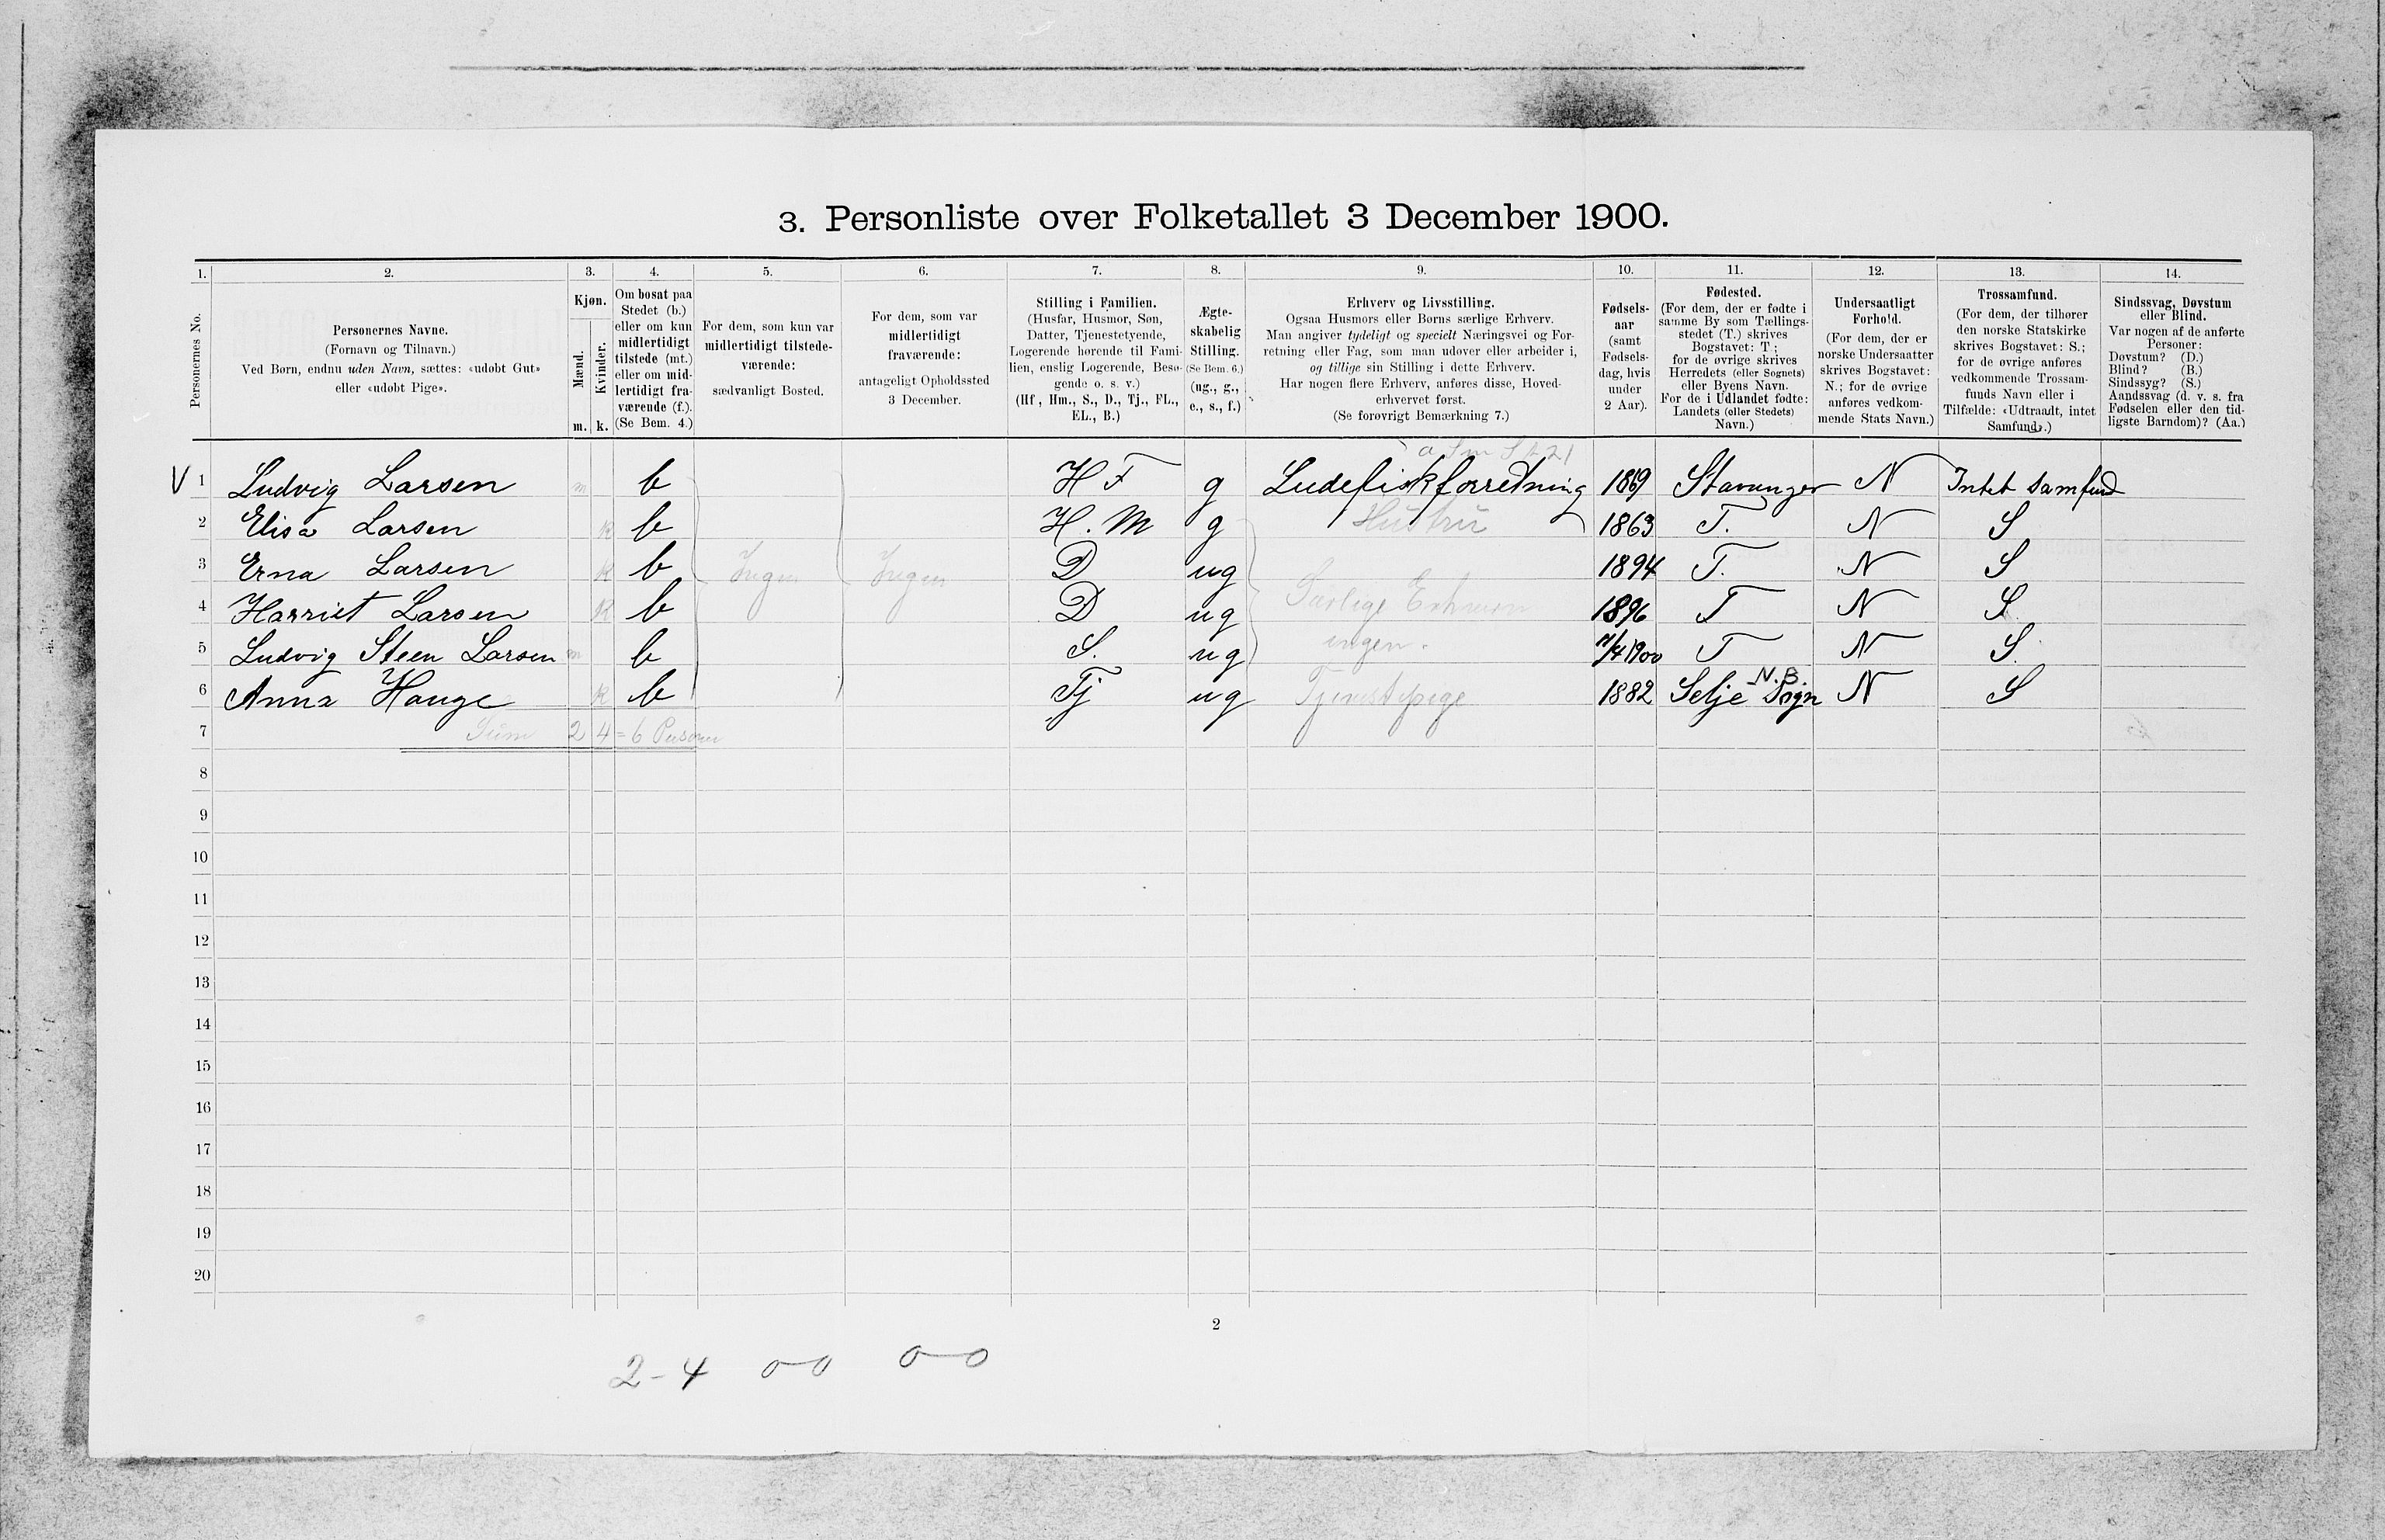 3. Personliste over Folketallet 3 December 1900.
1. 2. 3. 4. 5. 6. 7. 8. 9. 10. 11. 12. 13. 14.
Personernes No.
Personernes Navne.
(Fornavn og Tilnavn.)
Ved Børn, endnu uden Navn, sættes: «udøbt Gut»
eller «udøbt Pige».
Kjøn.
Mænd.
Kvinder.
m. k.
Om bosat paa
Stedet (b.)
eller om kun
midlertidigt
tilstede (mt.)
eller om mid-
lertidigt fra-
værende (f.).
(Se Bem. 4.)
For dem, som kun var
midlertidigt tilstede-
værende:
sædvanligt Bosted.
For dem, som var
midlertidigt
fraværende:
antageligt Opholdssted
3 December.
Stilling i Familien.
(Husfar, Husmor, Søn,
Datter, Tjenestetyende,
Logerende hørende til Fami-
lien, enslig Logerende, Besø-
gende o. s. v.)
(Hf., Hm., S., D., Tj., FL.,
EL., B.)
Ægte-
skabelig
Stilling.
(Se Bem. 6.)
(ug., g.,
e., s., f.)
Erhverv og Livsstilling.
Ogsaa Husmors eller Børns særlige Erhverv.
Man angiver tydeligt og specielt Næringsvei og For-
retning eller Fag, som man udøver eller arbeider i,
og tillige sin Stilling i dette Erhverv.
Har nogen flere Erhverv, anføres disse, Hoved-
erhvervet først.
(Se forøvrigt Bemærkning 7.)
Fødsels-
aar
(samt
Fødsels-
dag, hvis
under
2 Aar).
Fødested.
(For dem, der er fødte i
samme By som Tællings-
stedet (T.) skrives
Bogstavet: T.;
for de øvrige skrives
Herredets (eller Sognets)
eller Byens Navn.
For de i Udlandet fødte:
Landets (eller Stedets)
Navn.)
Undersaatligt
Forhold.
(For dem, der er
norske Undersaatter
skrives Bogstavet:
N.; for de øvrige
anføres vedkom-
mende Stats Navn.)
Trossamfund.
(For dem, der tilhører
den norske Statskirke
skrives Bogstavet: S.;
for de øvrige anføres
vedkommende Trossam-
funds Navn eller i
Tilfælde: «Udtraadt, intet
Samfund».)
Sindssvag, Døvstum
eller Blind.
Var nogen af de anførte
Personer:
Døvstum? (D.)
Blind? (B.)
Sindssyg? (S.)
Aandssvag (d. v. s. fra
Fødselen eller den tid-
ligste Barndom)? (Aa.)
V 1 Ludvig Larsen m b H F g Ludefiskforretning 1869 Stavanger N Intet samfund
2 Elisa Larsen k b H. M g Hustru 1863 T. N S
3 Erna Larsen k b Ingen Ingen D ug 1894 T. N S
4 Harriet Larsen k b D ug Særlige Erhverv 1896 T N S
5 Ludvig Steen Larsen m b S. ug ingen. 1900 T N S
N.B.
6 Anna Hauge k b Tj ug Tjenestepige 1882 Selje Sogn N S
7 Sum 2 4 = 6 Personer
8
9
10
11
12
13
14
15
16
17
18
19
20
2
2-4 0-0 0-0